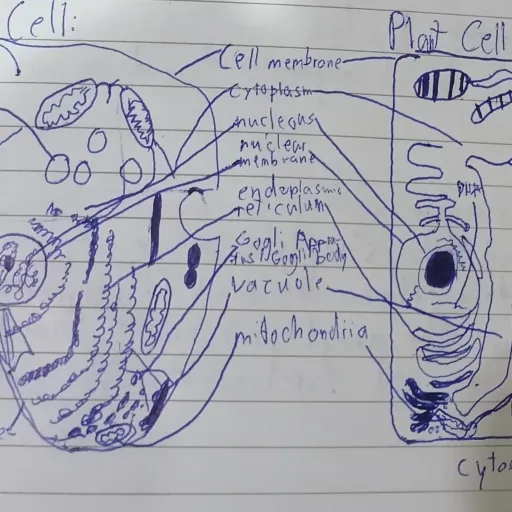 Cell:
Plant Cell
Cell membrane
Cytoplasm
nucleous
nuclear
membrane
endoplasmic
reticulum
Gogli Appra-
tus/Gogli body
Vacuole
mitochondria
DNA
cytos